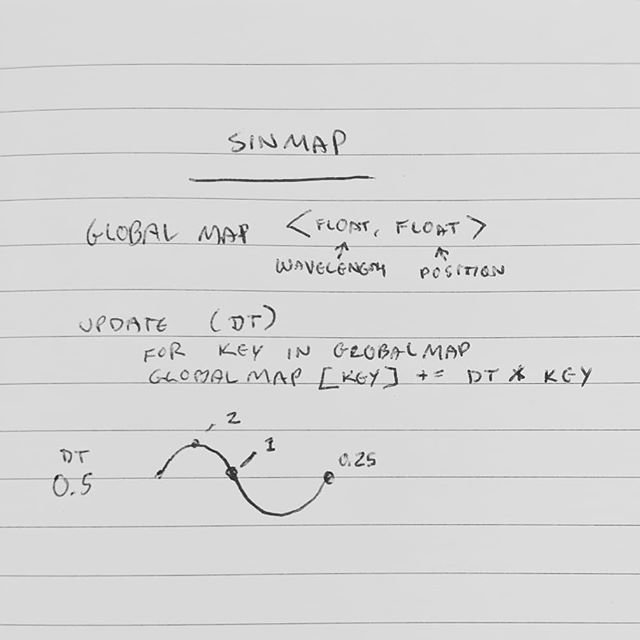 SINMAP
GLOBAL MAP <FLOAT, FLOAT>
WAVELENGTH POSITION
UPDATE (DT)
FOR KEY IN GLOBALMAP
GLOBALMAP [KEY] += DT * KEY
2
1
DT
0.25
0.5